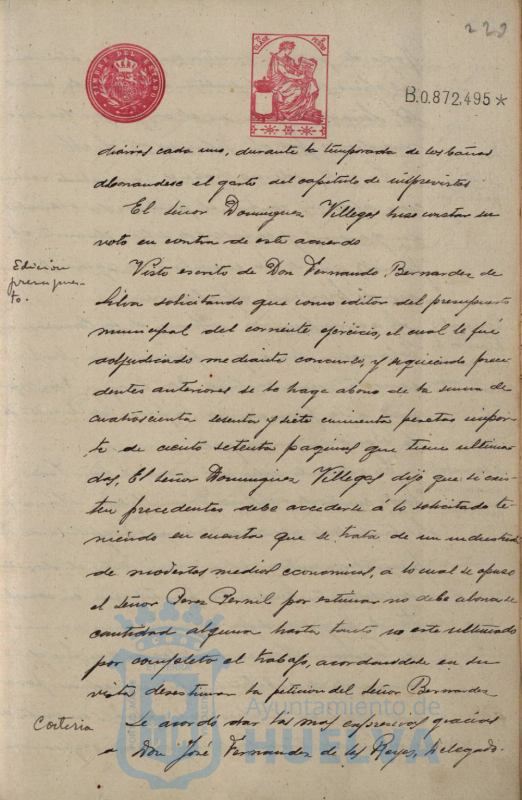 229
TIMBRE DEL ESTADO
CLASE
B.0.872.495*
diarias cada uno, durante la temporada de los baños
abonandose el gasto del capitulo de imprevistos
El Señor Dominguez Villegas hiso constar su
voto en contra de este acuerdo
Edicion
presupues-
to.
Visto escrito de Don Fernando Bernardez de
Silva solicitando que como editor del presupuesto
municipal del corriente ejercicio, el cual le fué
adjudicado mediante concurso, y siguiendo prece-
dentes anteriores se le haga abono de la suma de
cuatrocienta sesenta y siete cincuenta pesetas impor-
te de ciento setenta paginas que tiene ultima-
das, El Señor Dominguez Villegas dijo que si exis-
ten precedentes debe accederse á lo solicitado te-
niendo en cuenta que se trata de un industrial
de modestos medios economicos, a lo cual se opuso
el Señor Perez Gernil por estimar no debe abonarse
cantidad alguna hasta tanto no este ultimado
por completo el trabajo, acordandose en su
vista desestimar la peticion del Señor Bernardez
Corteria
Se acordó dar las mas expresivas gracias
a Don José Fernandez de los Reyes, Delegado
Ayuntamiento de
HUELVA